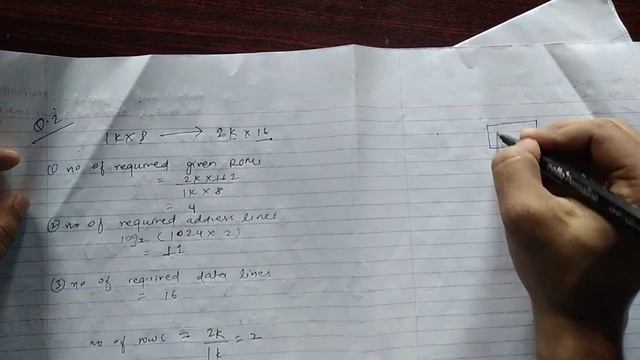 Q.2
1K×8 → 2K × 16
(1) no of required given ROMs
= 2K × 16 2 / 1K × 8
= 4
(2) no of required address lines
log₂ (1024 × 2)
= 11
(3) no of required data lines
= 16
no of rows = 2K / 1K = 2